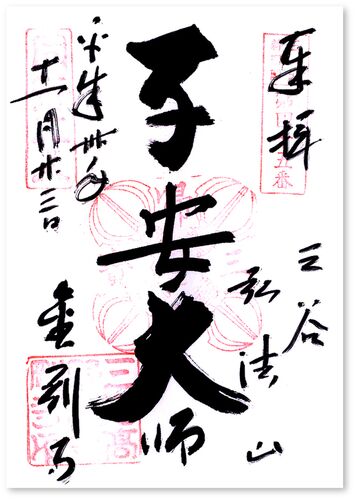 奉拝
三谷
弘法山
子安大師
平成卅年
十一月廿三日
金剛寺